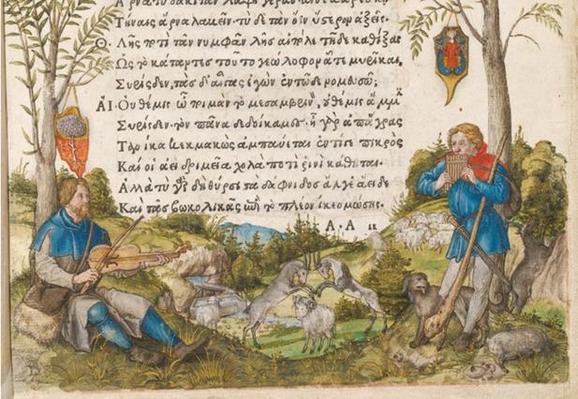 Τήναις ἄρνα λαβεῖν· τὺ δὲ τὰν ὄϊν ὕστερον ἀξεῖς.
Θ. Λῇς ποτὶ τᾶν νυμφᾶν λῇς αἰπόλε τῇδε καθίξας
Ὡς τὸ κάταντες τοῦτο γεώλοφον ᾇτε μυρῖκαι,
Συρίσδεν, τὰς δ' αἶγας ἐγὼν ἐν τῷδε νομευσῶ;
ΑΙ. Οὐ θέμις ὦ ποιμὰν τὸ μεσαμβρινὸν, οὐ θέμις ἄμμιν
Συρίσδεν· τὸν πᾶνα δεδοίκαμες· ἦ γὰρ ἀπ' ἄγρας
Τανίκα κεκμακὼς ἀμπαύεται· ἐντί γε πικρὸς
Καί οἱ ἀεὶ δριμεῖα χολὰ ποτὶ ῥινὶ κάθηται.
Ἀλλὰ τὺ γὰρ δὴ θύρσι τὰ δάφνιδος ἄλγε ἄειδες
Καὶ τᾶς βωκολικᾶς ἐπὶ τὸ πλέον ἵκεο μώσης.
A.A ii